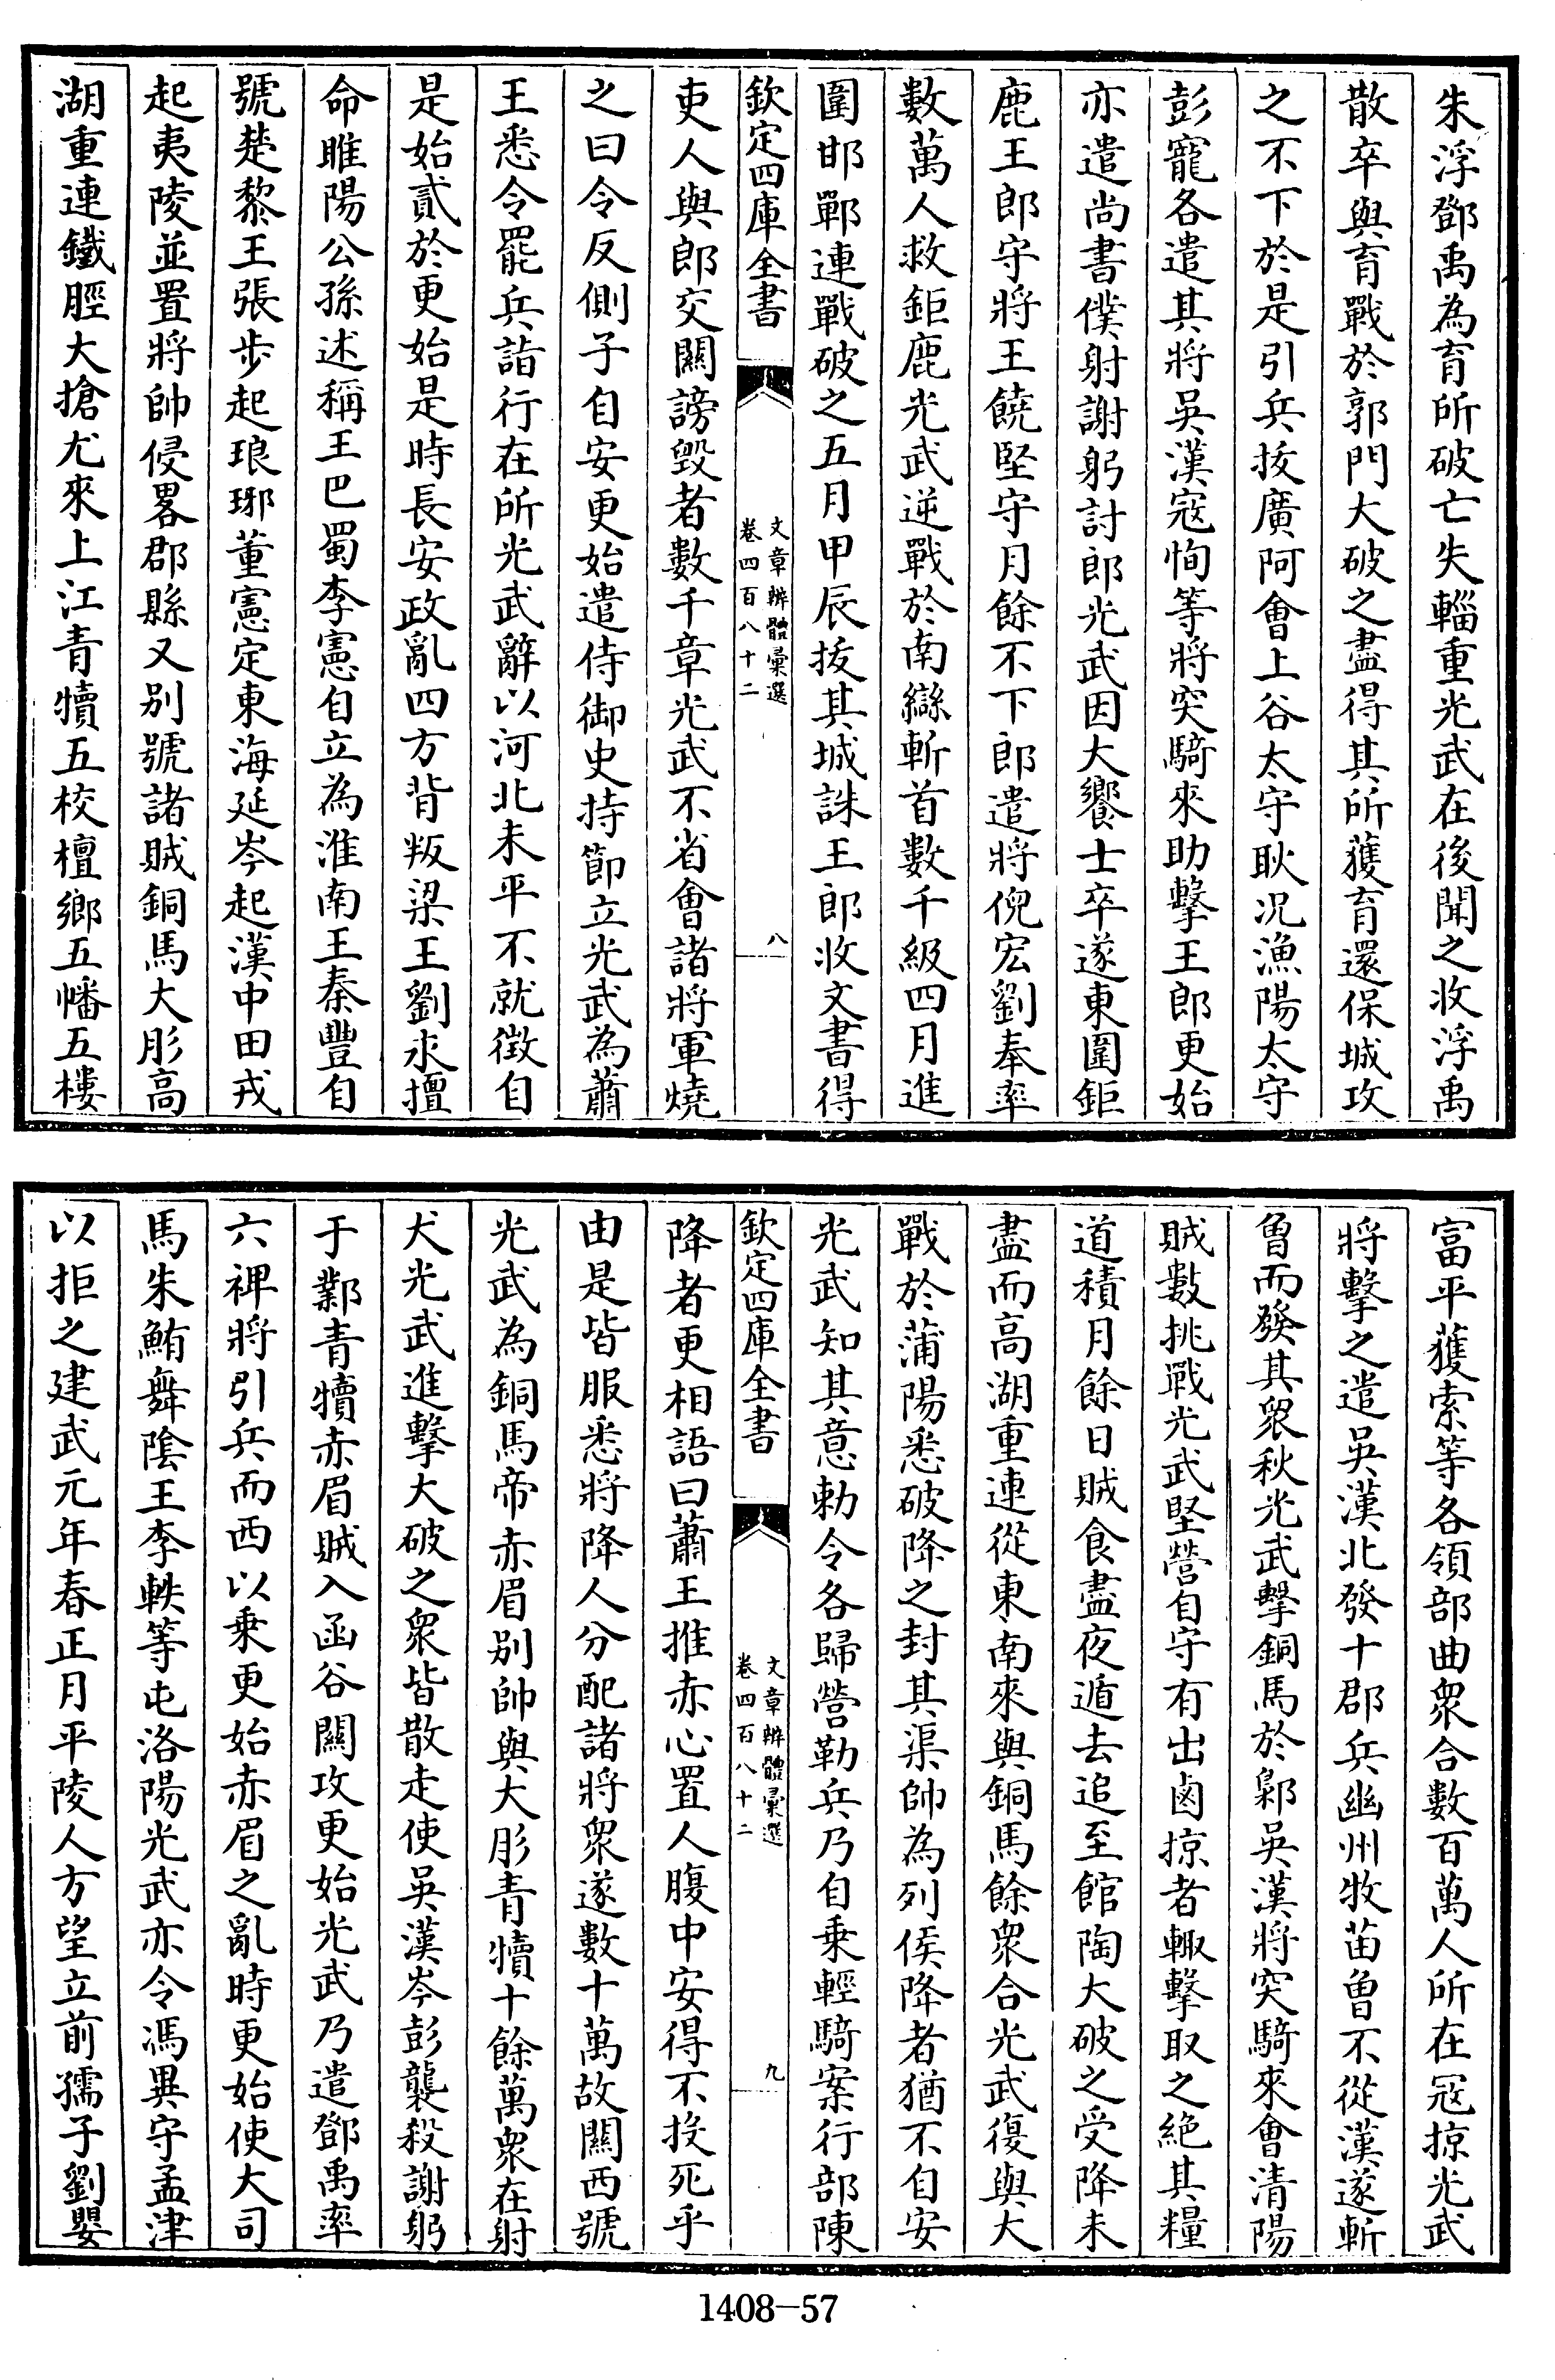 朱浮鄧禹為育所破亡失輜重光武在後聞之收浮禹
散卒與育戰於郭門大破之盡得其所獲育還保城攻
之不下於是引兵拔廣阿會上谷太守耿况漁陽太守
彭寵各遣其將吳漢寇恂等將突騎來助擊王郎更始
亦遣尚書僕射謝躬討郎光武因大饗士卒遂東圍鉅
鹿王郎守將王饒堅守月餘不下郎遣將倪宏劉奉率
數萬人救鉅鹿光武逆戰於南䜌斬首數千級四月進
圍邯鄲連戰破之五月甲辰拔其城誅王郎收文書得
欽定四庫全書
文章辨體彙選
卷四百八十二
八
吏人與郎交關謗毀者數千章光武不省會諸將軍燒
之曰令反側子自安更始遣侍御史持節立光武為蕭
王悉令罷兵詣行在所光武辭以河北未平不就徵自
是始貳於更始是時長安政亂四方背叛梁王劉永擅
命睢陽公孫述稱王巴蜀李憲自立為淮南王秦豐自
號楚黎王張步起琅琊董憲定東海延岑起漢中田戎
起夷陵並置將帥侵畧郡縣又别號諸賊銅馬大肜高
湖重連鐵脛大搶尤來上江青犢五校檀鄉五幡五樓
富平獲索等各領部曲衆合數百萬人所在冦掠光武
將擊之遣吳漢北發十郡兵幽州牧苗曾不從漢遂斬
曾而發其衆秋光武擊銅馬於鄡吳漢將突騎來會清陽
賊數挑戰光武堅營自守有出鹵掠者輙擊取之絶其糧
道積月餘日賊食盡夜遁去追至館陶大破之受降未
盡而高湖重連從東南來與銅馬餘衆合光武復與大
戰於蒲陽悉破降之封其渠帥為列侯降者猶不自安
光武知其意勅令各歸營勒兵乃自乗輕騎案行部陳
欽定四庫全書
文章辨體彙選
卷四百八十二
九
降者更相語曰蕭王推赤心置人腹中安得不投死乎
由是皆服悉將降人分配諸將衆遂數十萬故關西號
光武為銅馬帝赤眉别帥與大肜青犢十餘萬衆在射
犬光武進擊大破之衆皆散走使吳漢岑彭襲殺謝躬
于鄴青犢赤眉賊入函谷關攻更始光武乃遣鄧禹率
六裨將引兵而西以乗更始赤眉之亂時更始使大司
馬朱鮪舞陰王李軼等屯洛陽光武亦令馮異守孟津
以拒之建武元年春正月平陵人方望立前孺子劉嬰
1408-57